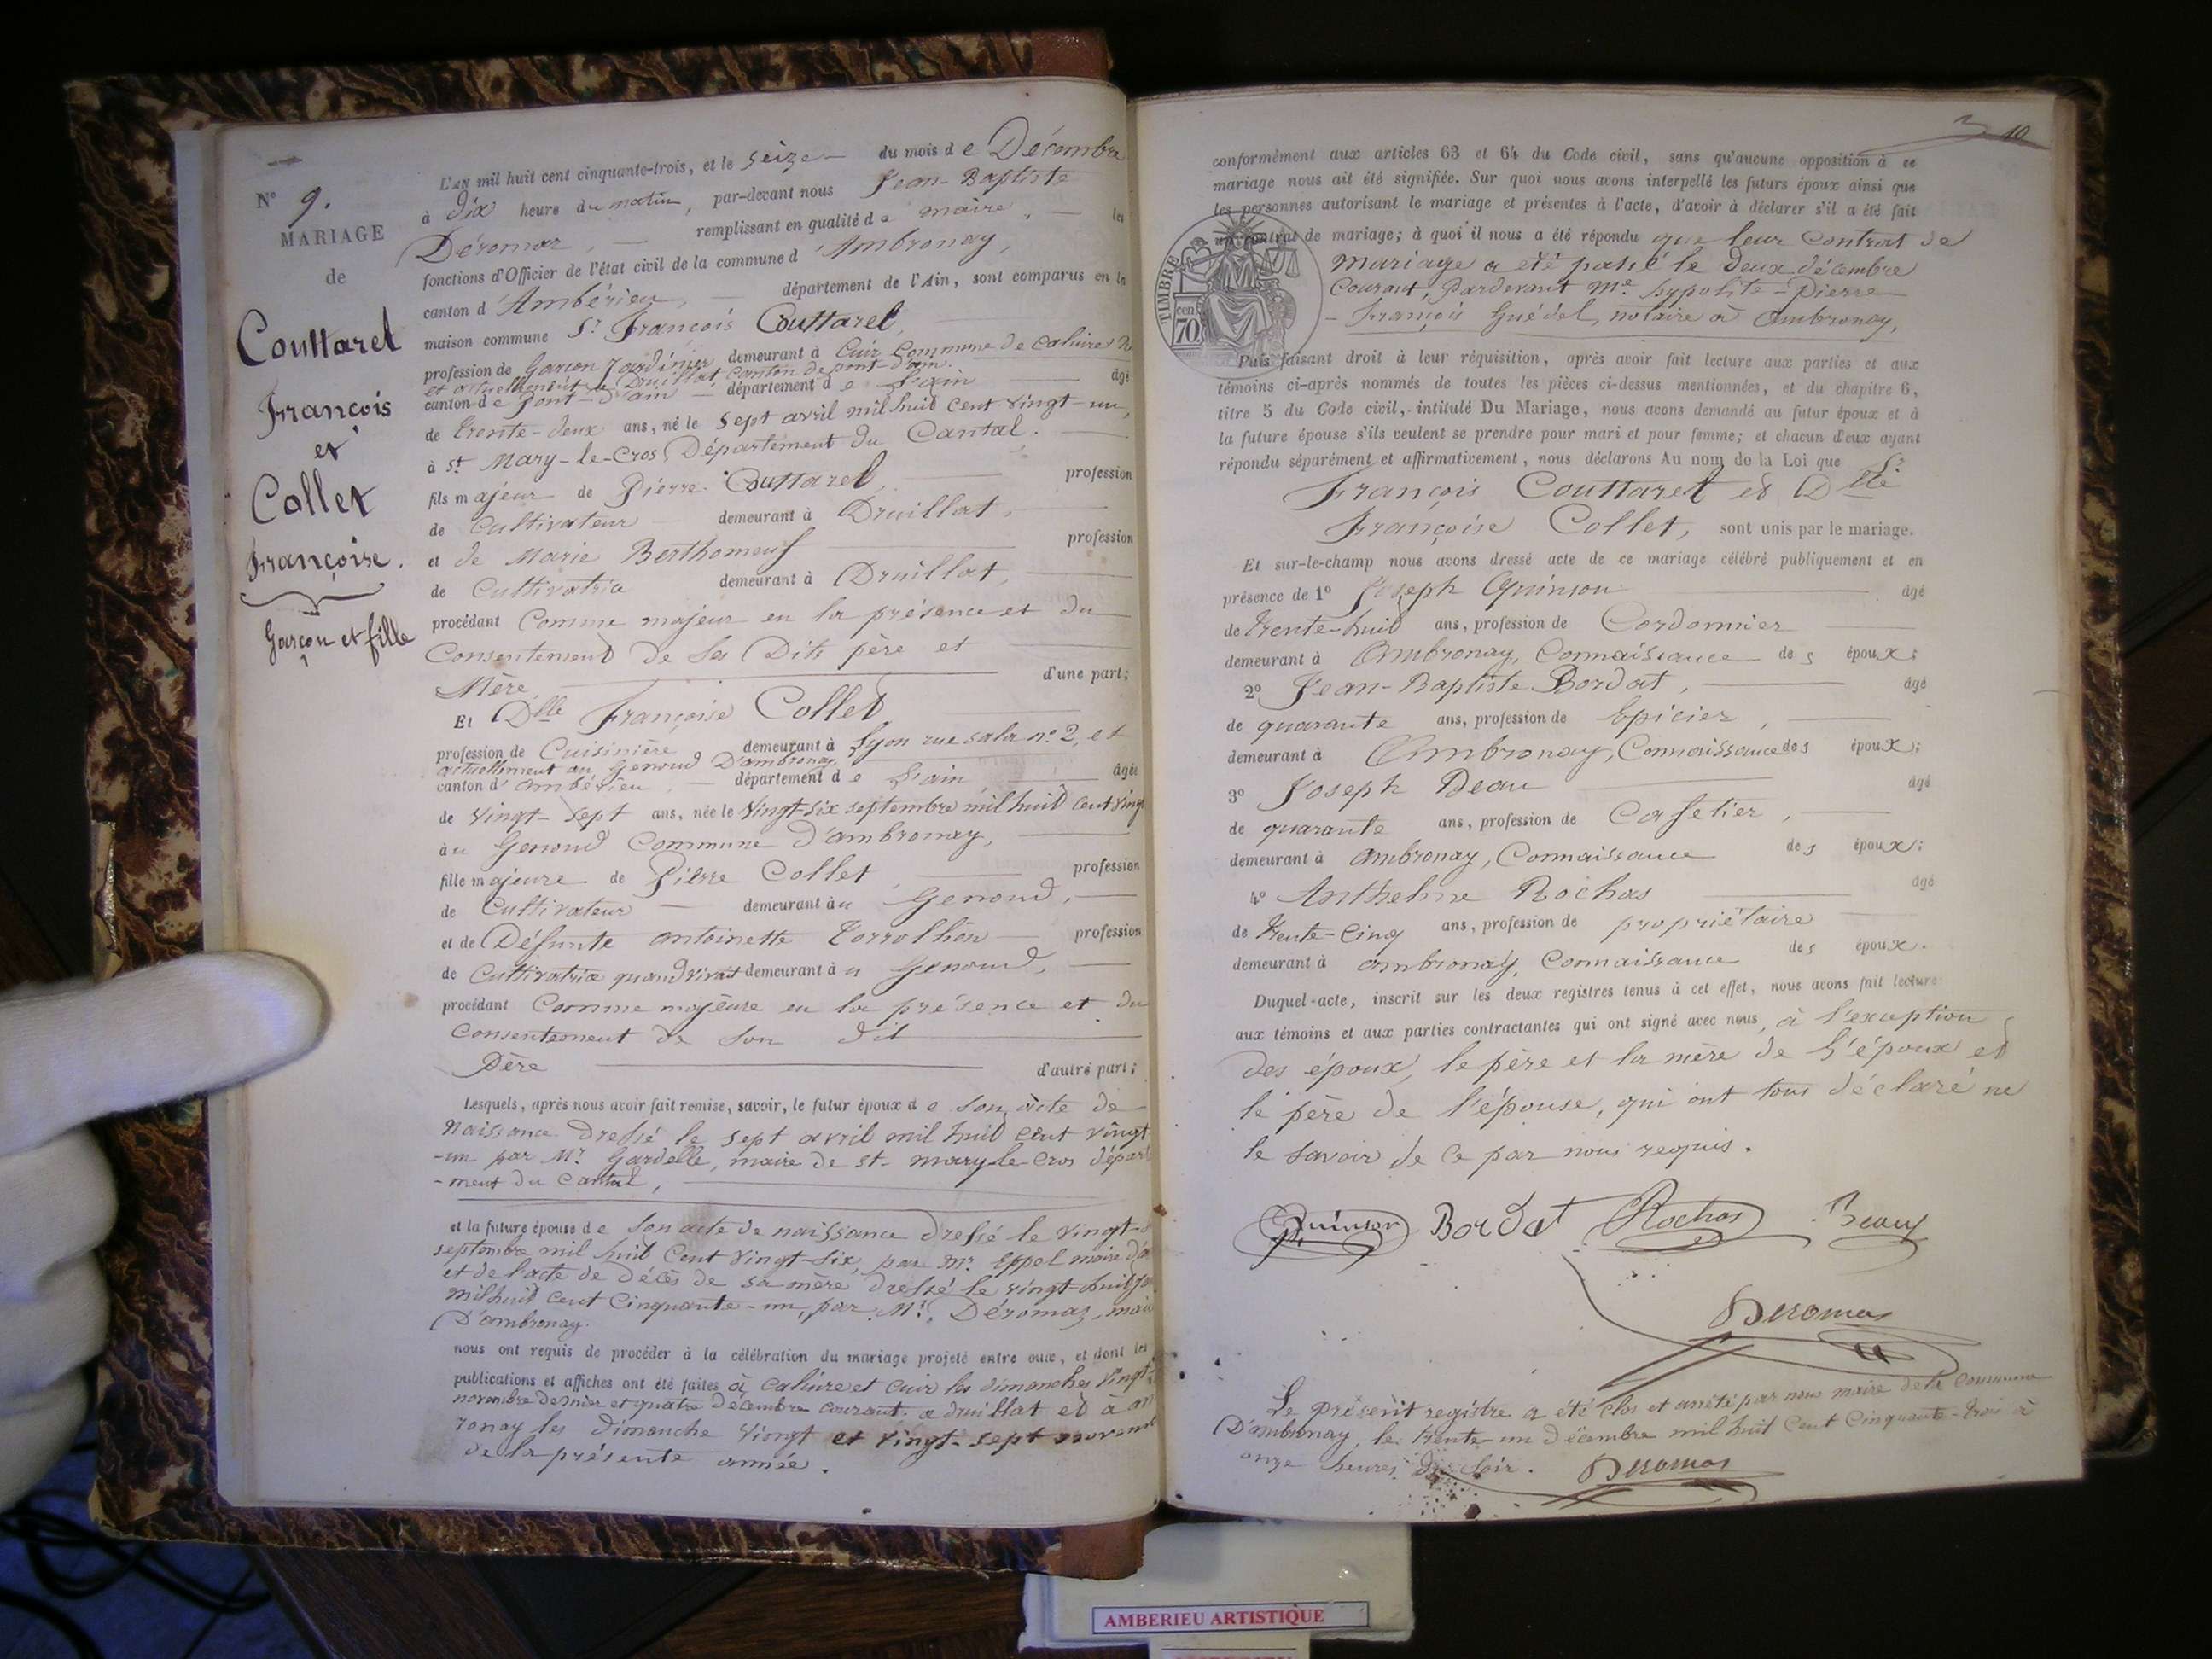 N° 9.
MARIAGE
de
Couttarel
François
et
Collet
Françoise.
Garçon et fille
L'AN mil huit cent cinquante-trois, et le seize du mois de Décembre
à dix heure du matin, par-devant nous Jean-Baptiste
Déromas, remplissant en qualité de maire, les
fonctions d'Officier de l'état civil de la commune d'Ambronay,
canton d'Ambérieu, département de l'Ain, sont comparus en la
maison commune Sr. François Couttarel,
profession de Garçon Jardinier demeurant à Cuir Commune de Caluire
et actuellement à Druillat, Canton de pont-d'ain.
canton de Pont-d'ain département de l'ain âgé
de trente-deux ans, né le sept avril mil huit cent vingt-un,
à St. Mary-le-Cros Département du Cantal.
fils majeur de Pierre Couttarel, profession
de Cultivateur demeurant à Druillat,
et de Marie Berthomeuf profession
de Cultivatrice demeurant à Druillat,
procédant Comme majeur en la présence et du
Consentement de ses Dits père et
Mère d'une part;
Et Dlle Françoise Collet
profession de Cuisinière demeurant à Lyon rue sala no. 2, et
actuellement au Genoud D'ambronay
canton d'ambérieu, département de l'ain âgée
de vingt-sept ans, née le vingt-six septembre mil huit cent vingt
au Genoud Commune D'ambronay,
fille majeure de Pierre Collet, profession
de Cultivateur demeurant au Genoud,
et de Défunte antoinette profession
de Cultivatrice quand vivait demeurant au Genoud,
procédant Comme majeure en la présence et du
Consentement de son dit
Père d'autre part;
Lesquels, après nous avoir fait remise, savoir, le futur époux de son acte de
naissance Dressé le sept avril mil huit cent vingt
-un par Mr. Gardelle, maire de st-mary-le Cros départe
-ment du Cantal,
et la future épouse de son acte de naissance dressé le vingt-s
septembre mil huit Cent vingt-six, par Mr. Eppel maire d'a
et de l'acte de décès de sa mère dressé le vingt-huit
mil huit cent Cinquante-un, par Mr. Déromas, mai
D'ambronay.
nous ont requis de procéder à la célébration du mariage projeté entre eux, et dont les
publications et affiches ont été faites à Caluire et Cuir les dimanches vingt
novembre dernier et quatre décembre courant. a druillat et à am
ronay les dimanche vingt et vingt-sept novemb
de la présente année.
10
conformément aux articles 63 et 64 du Code civil, sans qu'aucune opposition à ce
mariage nous ait été signifiée. Sur quoi nous avons interpellé les futurs époux ainsi que
les personnes autorisant le mariage et présentes à l'acte, d'avoir à déclarer s'il a été fait
un contrat de mariage; à quoi il nous a été répondu que leur Contrat de
mariage a été passé le Deux décembre
Courant, Pardevant Me. hypolite-Pierre
-François Guédel, notaire à Ambronay,
TIMBRE
70
cen.
Puis faisant droit à leur réquisition, après avoir fait lecture aux parties et aux
témoins ci-après nommés de toutes les pièces ci-dessus mentionnées, et du chapitre 6,
titre 5 du Code civil, intitulé Du Mariage, nous avons demandé au futur époux et à
la future épouse s'ils veulent se prendre pour mari et pour femme; et chacun d'eux ayant
répondu séparément et affirmativement, nous déclarons Au nom de la Loi que Sr.
François Couttarel et Dlle
Françoise Collet, sont unis par le mariage.
Et sur-le-champ nous avons dressé acte de ce mariage célébré publiquement et en
présence de 1° Joseph Quinson âgé
de trente-huit ans, profession de Cordonnier
demeurant à Ambronay, Connaissance des époux;
2° Jean-Baptiste Bordat, âgé
de quarante ans, profession de Epicier,
demeurant à Ambronay, Connaissance des époux;
3° Joseph Beau âgé
de quarante ans, profession de Cafetier,
demeurant à ambronay, Connaissance des époux;
4° Anthelme Rochas âgé
de trente-Cinq ans, profession de propriétaire
demeurant à ambronay, Connaissance des époux.
Duquel acte, inscrit sur les deux registres tenus à cet effet, nous avons fait lecture
aux témoins et aux parties contractantes qui ont signé avec nous, à l'exception
des époux, le père et la mère de l'époux et
le père de l'épouse, qui ont tous déclaré ne
le savoir de ce par nous requis.
Quinson Bordat Rochas Beau
Deromas
Le présent registre a été clos et arrêté par nous maire de la Commune
D'ambronay, le trente-un décembre mil huit Cent Cinquante-trois à
onze heures du soir. Deromas
AMBERIEU ARTISTIQUE